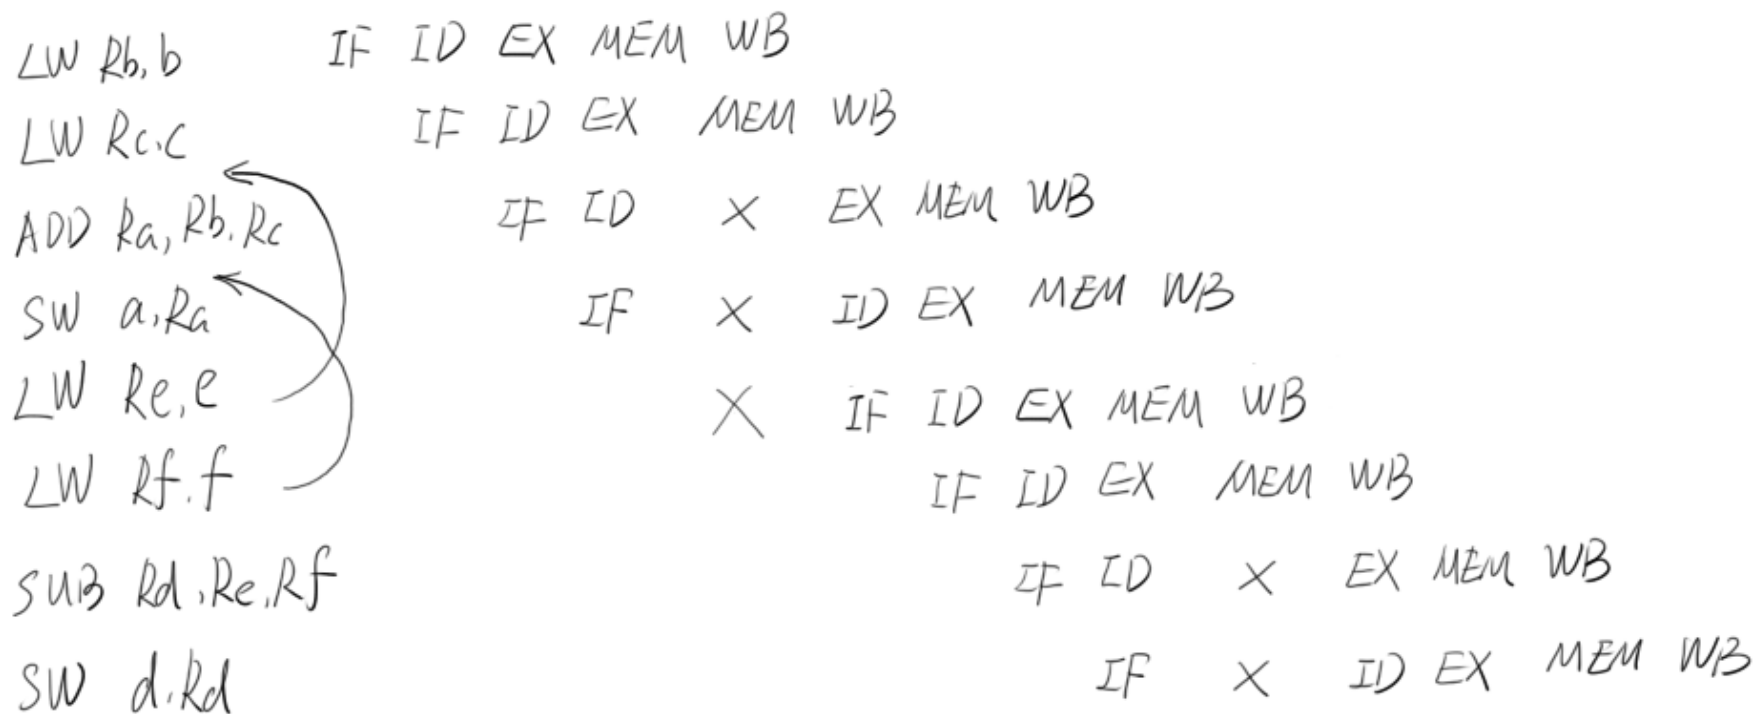 LW Rb, b IF ID EX MEM WB
LW Rc, c IF ID EX MEM WB
ADD Ra, Rb, Rc IF ID X EX MEM WB
SW a, Ra IF X ID EX MEM WB
LW Re, e X IF ID EX MEM WB
LW Rf, f IF ID EX MEM WB
SUB Rd, Re, Rf IF ID X EX MEM WB
SW d, Rd IF X ID EX MEM WB